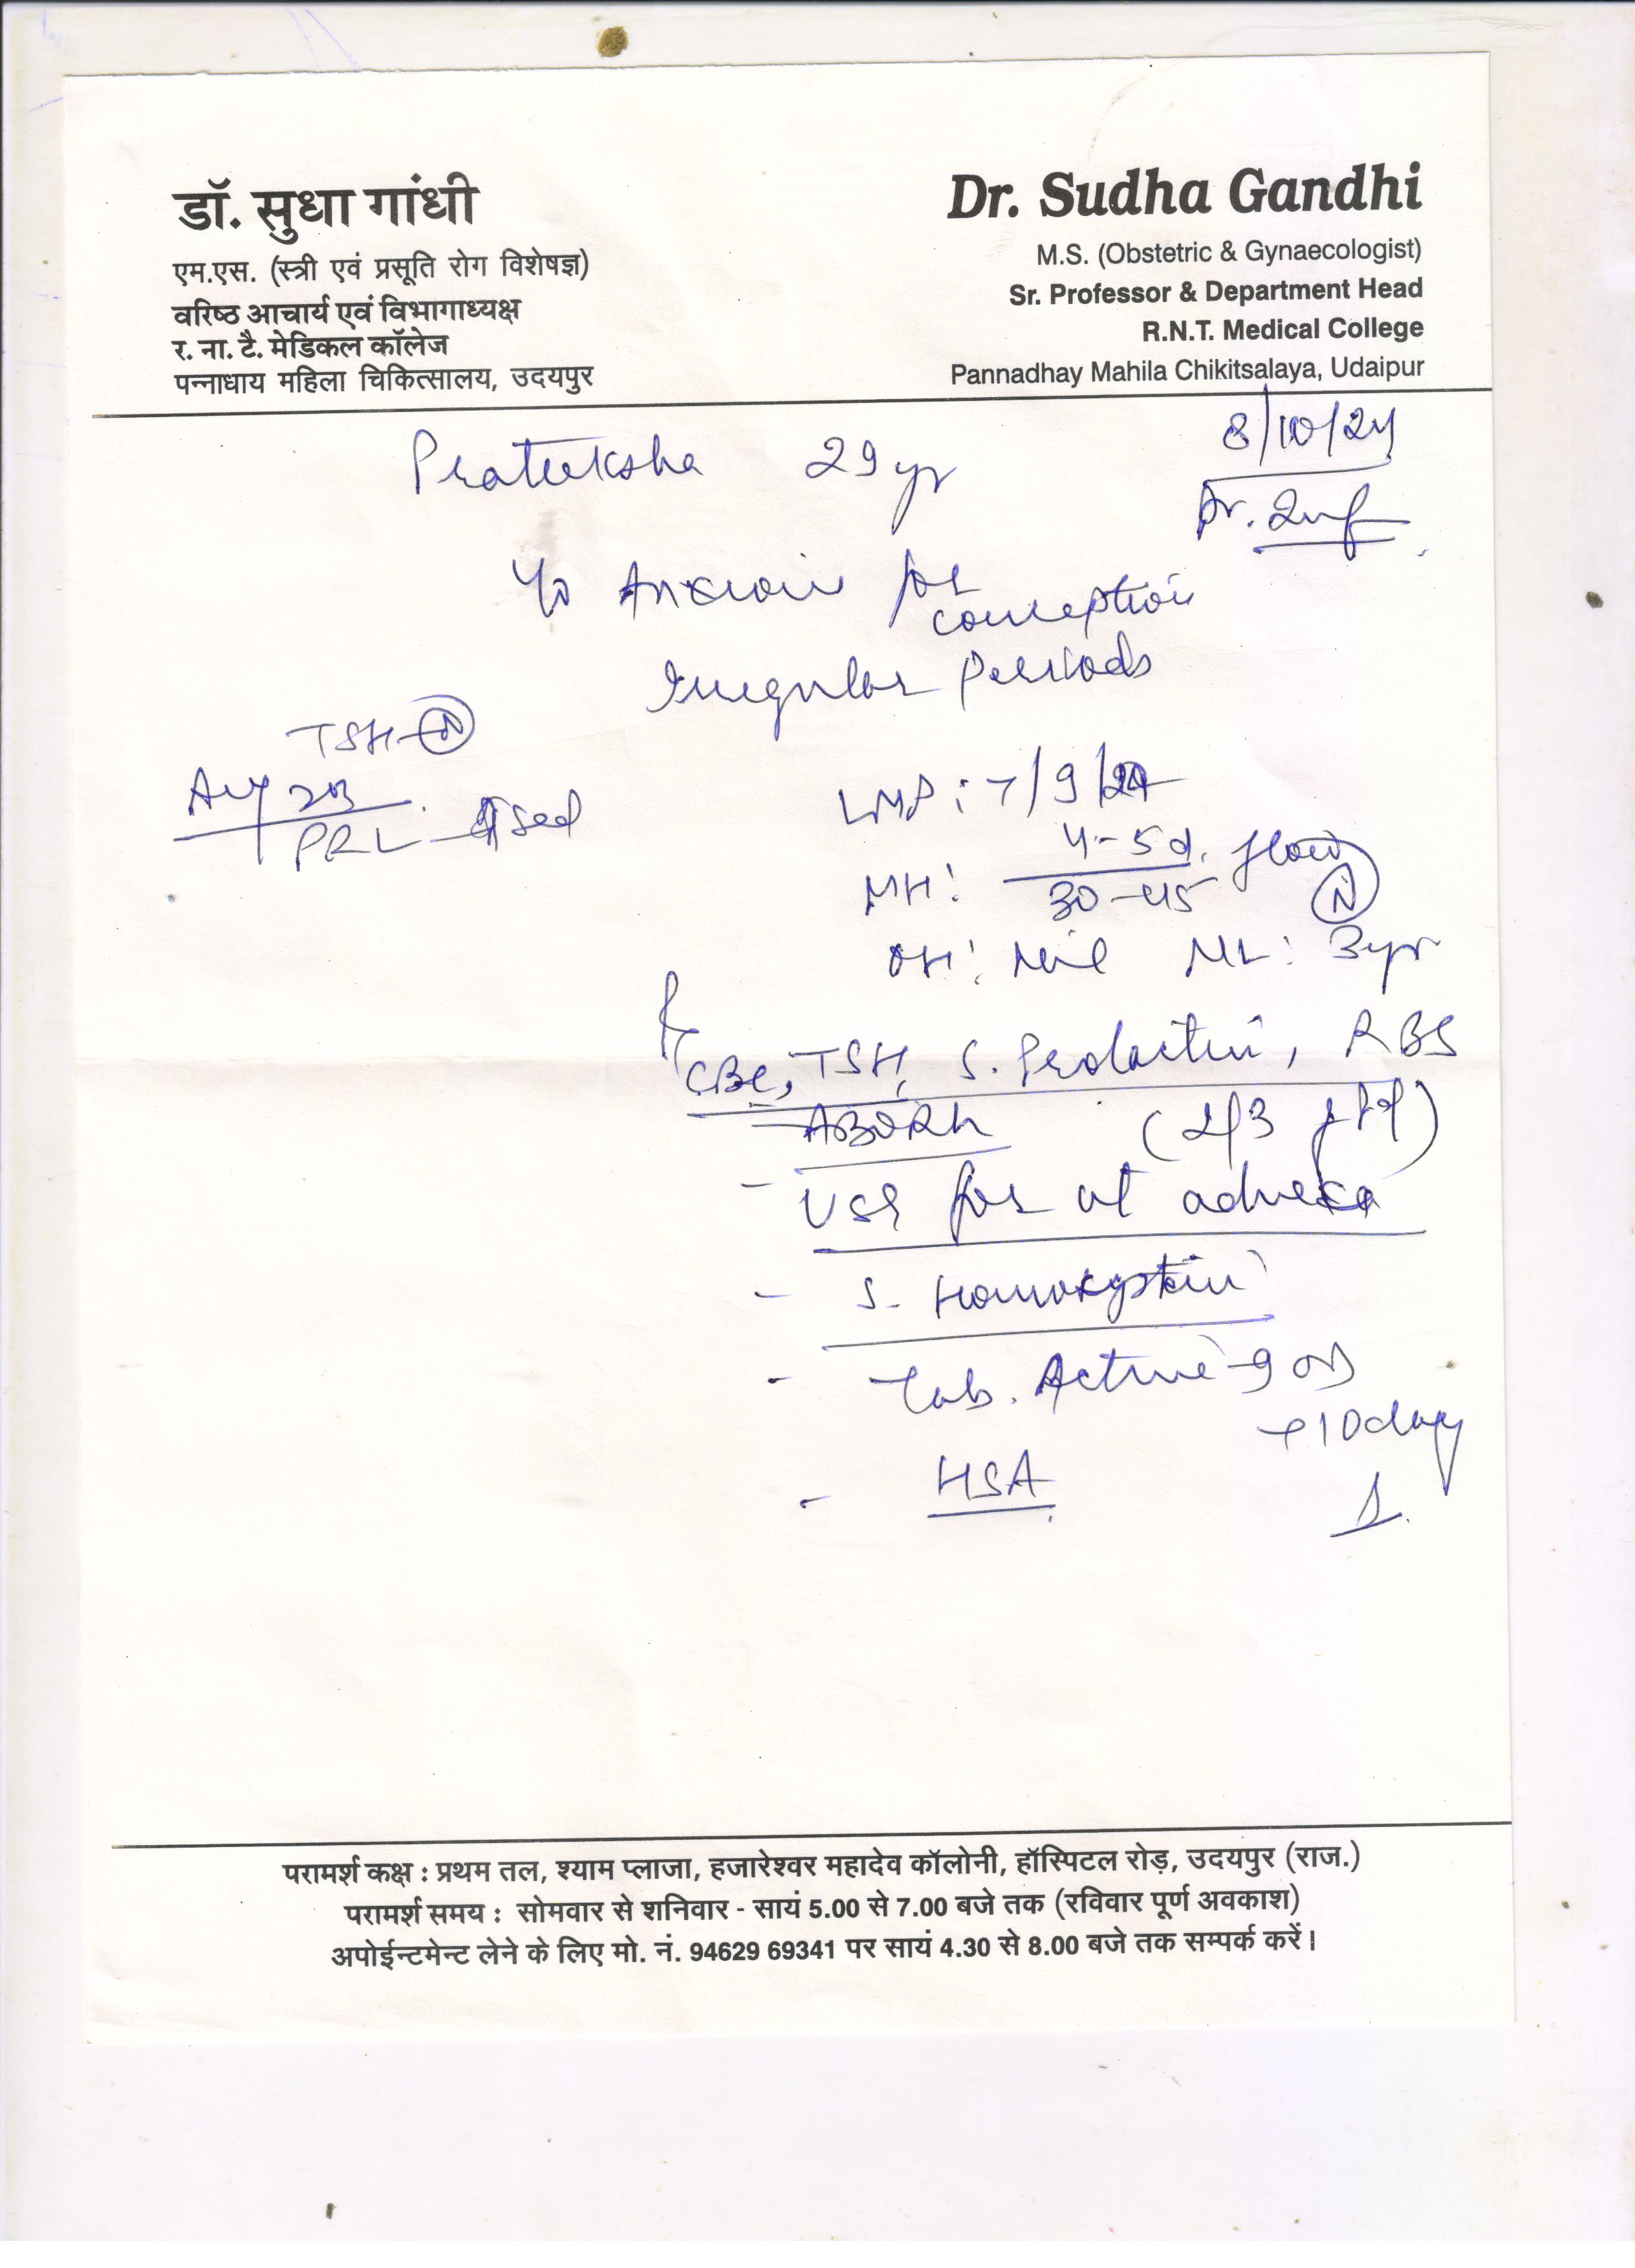 डॉ. सुधा गांधी
एम.एस. (स्त्री एवं प्रसूति रोग विशेषज्ञ)
वरिष्ठ आचार्य एवं विभागाध्यक्ष
र. ना. टै. मेडिकल कॉलेज
पन्नाधाय महिला चिकित्सालय, उदयपुर
Dr. Sudha Gandhi
M.S. (Obstetric & Gynaecologist)
Sr. Professor & Department Head
R.N.T. Medical College
Pannadhay Mahila Chikitsalaya, Udaipur
8/10/24
Prateeksha 29 yr
Anxious for
conception
Irregular Periods
TSH - N
Aug 23
PRL ↑sed
LMP : 7/9/24
MH : 4-5 d. flow
30-45 N
OH : Nil ML : 3 yr
CBC, TSH, S. Prolactin, RBS
- ABORh
- USG for ut adnexa
- S. Homocystein
- Tab. Active-9 OD
10 day
- HSA
परामर्श कक्ष : प्रथम तल, श्याम प्लाजा, हजारेश्वर महादेव कॉलोनी, हॉस्पिटल रोड़, उदयपुर (राज.)
परामर्श समय : सोमवार से शनिवार - सायं 5.00 से 7.00 बजे तक (रविवार पूर्ण अवकाश)
अपोईन्टमेन्ट लेने के लिए मो. नं. 94629 69341 पर सायं 4.30 से 8.00 बजे तक सम्पर्क करें।